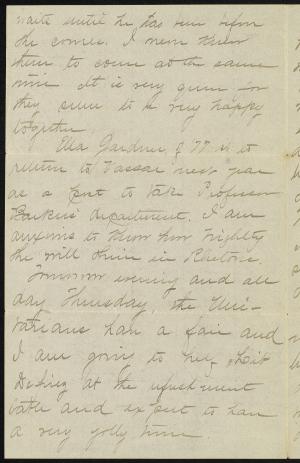 waits until he has been before
she comes. I never knew
them to come at the same
time. It is very queer - for
they seem to be very happy
together.
Ella Gardner of '77 is to
return to Vassar next year
as a sort to take Professor
Backus' department. I am
anxious to know how Nightly
she will shine in Rhetoric.
Tomorrow evening and all
day Thursday, the Uni-
tarians have a fair and
I am going to help
at the refreshment
table and expect to have
a very jolly time.